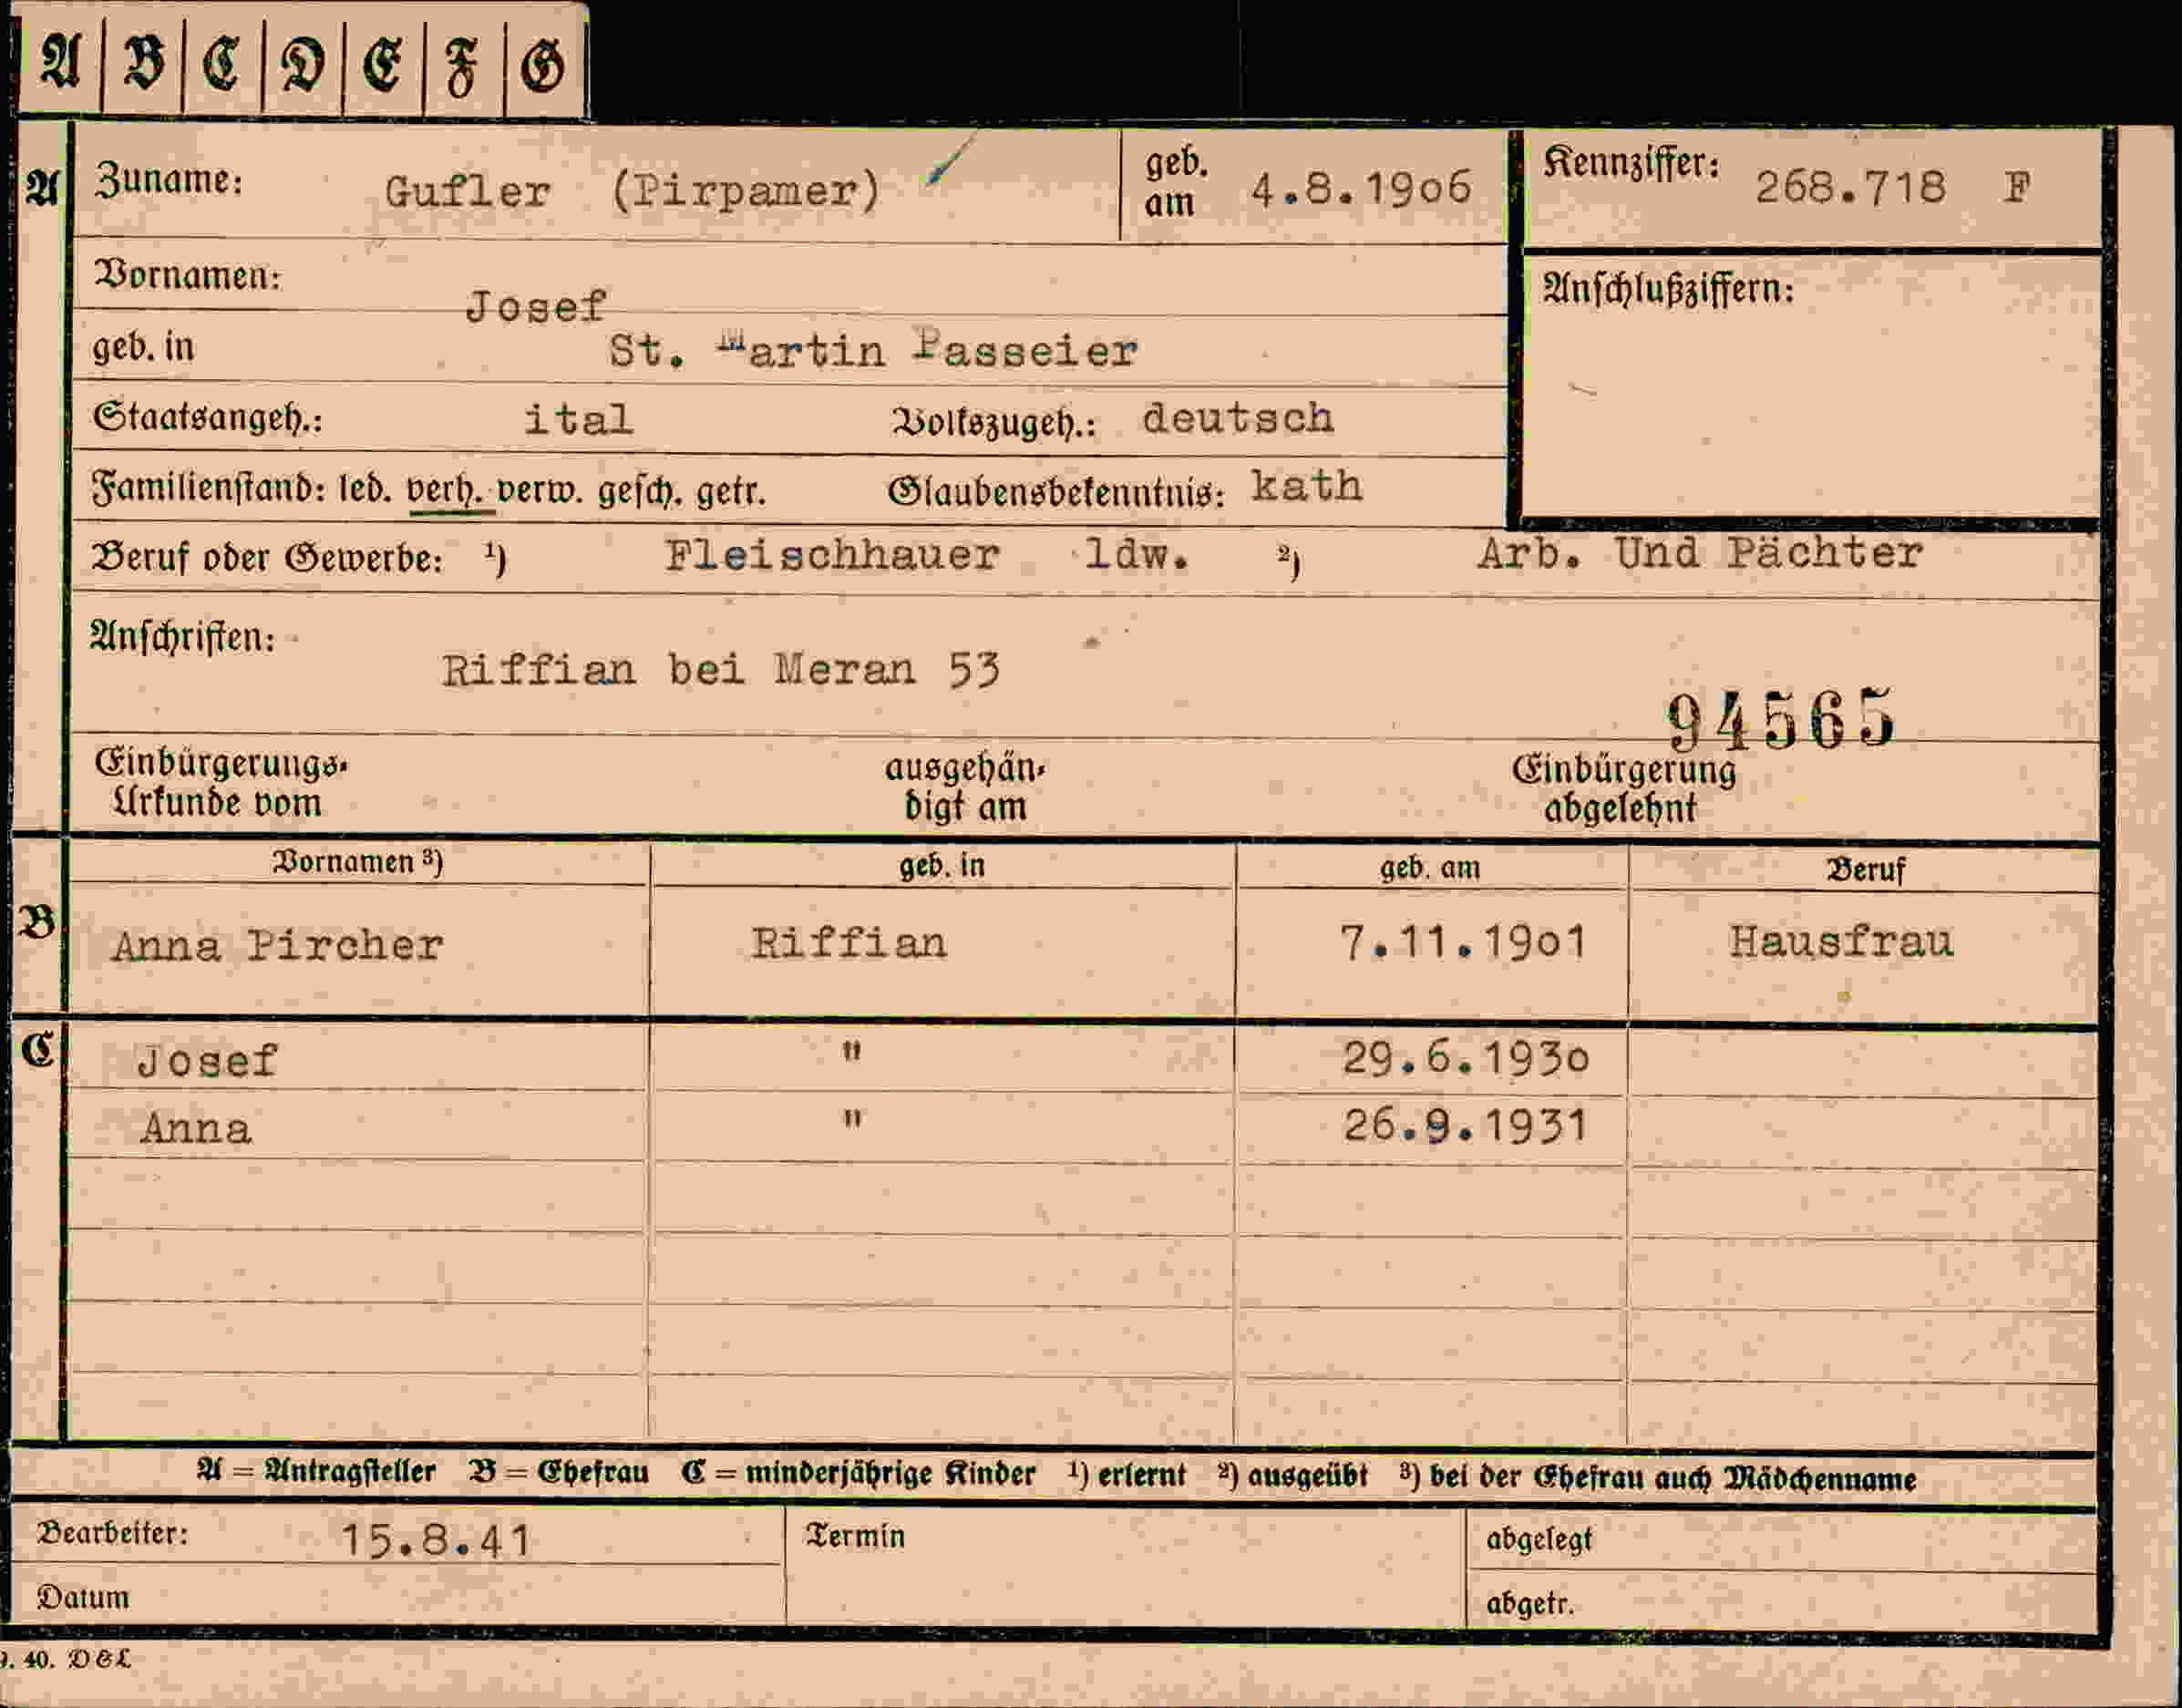 A B C D E F G
A Zuname: Gufler (Pirpamer) geb. am 4.8.19o6 Kennziffer: 268.718 F
Vornamen: Josef Anschlußziffern:
geb. in St. Martin Passeier
Staatsangeh.: ital Volkszugeh.: deutsch
Familienstand: led. verh. verw. gesch. getr. Glaubensbekenntnis: kath
Beruf oder Gewerbe: ¹) Fleischhauer ldw. ²) Arb. Und Pächter
Anschriften: Riffian bei Meran 53
94565
Einbürgerungs- ausgehän- Einbürgerung
Urkunde vom digt am abgelehnt
Vornamen ³) geb. in geb. am Beruf
B Anna Pircher Riffian 7.11.19o1 Hausfrau
C Josef " 29.6.193o
Anna " 26.9.1931
A = Antragsteller B = Ehefrau C = minderjährige Kinder ¹) erlernt ²) ausgeübt ³) bei der Ehefrau auch Mädchenname
Bearbeiter: 15.8.41 Termin abgelegt
Datum abgetr.
40. D & L